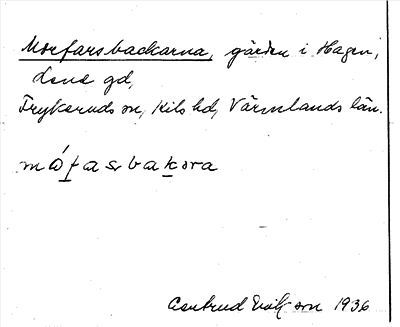 Morfarsbackarna, gärden i Hagen,
Lene gd,
Frykeruds sn, Kils hd, Värmlands län.
mó̱f̱asbaḵɔra
Gertrud son 1936